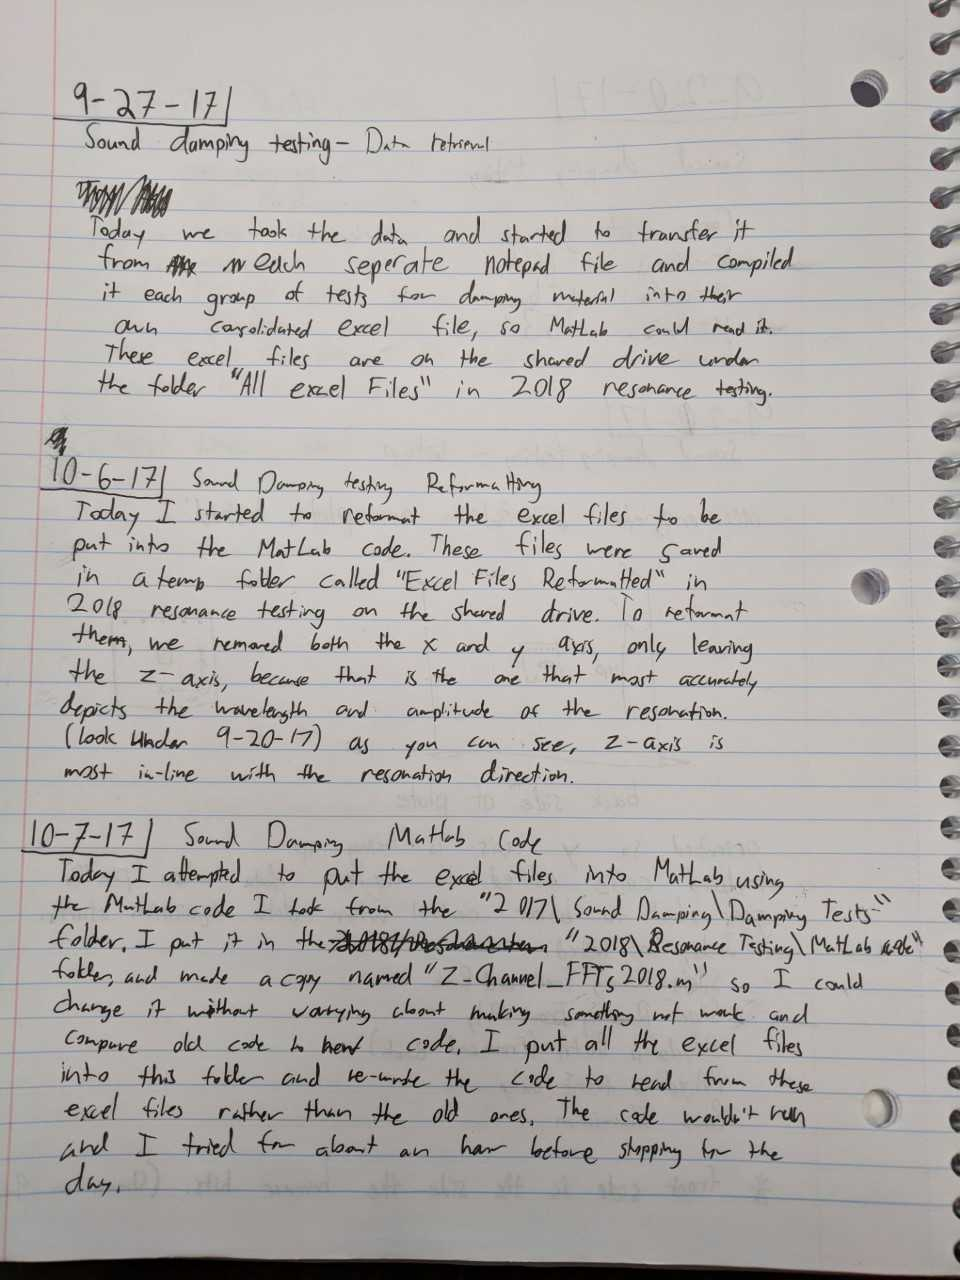 9-27-17
Sound damping testing - Data retrieval
Today we took the data and started to transfer it
from each seperate notepad file and compiled
it each group of tests for damping material into their
own consolidated excel file, so MatLab could read it.
These excel files are on the shared drive under
the folder "All excel Files" in 2018 resonance testing.
10-6-17 Sound Damping testing Reformatting
Today I started to reformat the excel files to be
put into the MatLab code. These files were saved
in a temp folder called "Excel Files Reformatted" in
2018 resonance testing on the shared drive. To reformat
them, we removed both the x and y axis, only leaving
the z-axis, because that is the one that most accurately
depicts the wavelength and amplitude of the resonation.
(look under 9-20-17) as you can see, z-axis is
most in-line with the resonation direction.
10-7-17 Sound Damping Matlab Code
Today I attempted to put the excel files into MatLab using
the MatLab code I took from the "2017\ Sound Damping\Damping Tests"
folder. I put it in the "2018\Resonance Testing\MatLab code"
folder, and made a copy named "Z-Channel_FFTs2018.m" so I could
change it without worrying about making something not work and
compare old code to new code. I put all the excel files
into this folder and re-wrote the code to read from these
excel files rather than the old ones. The code wouldn't run
and I tried for about an hour before stopping for the
day.